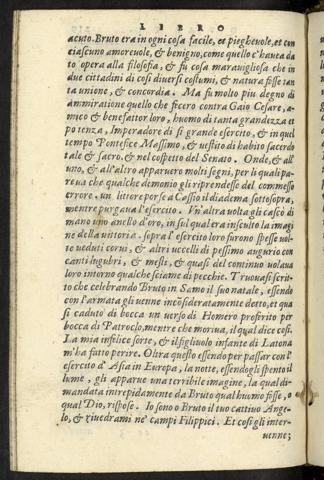 LIBRO
acuto. Bruto era in ogni cosa facile, et pieghevole, et con
ciascuno amorevole, & benigno, come quello c'haueа da
to opera alla filosofia, & fù cosa marauigliosa che in
due cittadini di cosi diuersi costumi, & natura fosse tan
ta unione, & concordia. Ma fu molto piu degno di
ammiratione quello che fecero contra Gaio Cesare, a-
mico & benefattor loro, huomo di tanta grandezza et
potenza, Imperadore di si grande esercito, & in quel
tempo Pontefice Massimo, & uestito di habito sacerdo
tale & sacro, & nel cospetto del Senato. Onde, & all'
uno, & all'altro apparuero molti segni, per li quali pa-
reua che qualche demonio gli riprendesse del commesso
errore. un littore porse a Cassio il diadema sottosopra,
mentre purgaua l'esercito. Vn'altra uolta gli cascò di
mano uno anello d'oro, in sul qual era insculto la imagi
ne della uittoria. sopra l'esercito loro furono spesse uol-
te ueduti corui, & altri uccelli di pessimo augurio con
canti lugubri, & mesti, & quasi del continuo uolaua
loro intorno qualche sciame di pecchie. Truouasi scrit-
to che celebrando Bruto in Samo il suo natale, essendo
con l'armata gli uenne incōsideratamente detto, et qua
si caduto di bocca un uerso di Homero proferito per
bocca di Patroclo, mentre che moriua, il qual dice cosi.
La mia infelice sorte, & il figliuolo infante di Latona
m'ha fatto perire. Oltra questo essendo per passar con l'
esercito d'Asia in Europa, la notte, essendogli spento il
lume, gli apparue una terribile imagine, la qual di-
mandata intrepidamente da Bruto qual huomo fosse, o
qual Dio, rispose. Io sono o Bruto il tuo cattiuo Ange-
lo, & riuedrami ne' campi Filippici. Et cosi gli inter-
uenne;